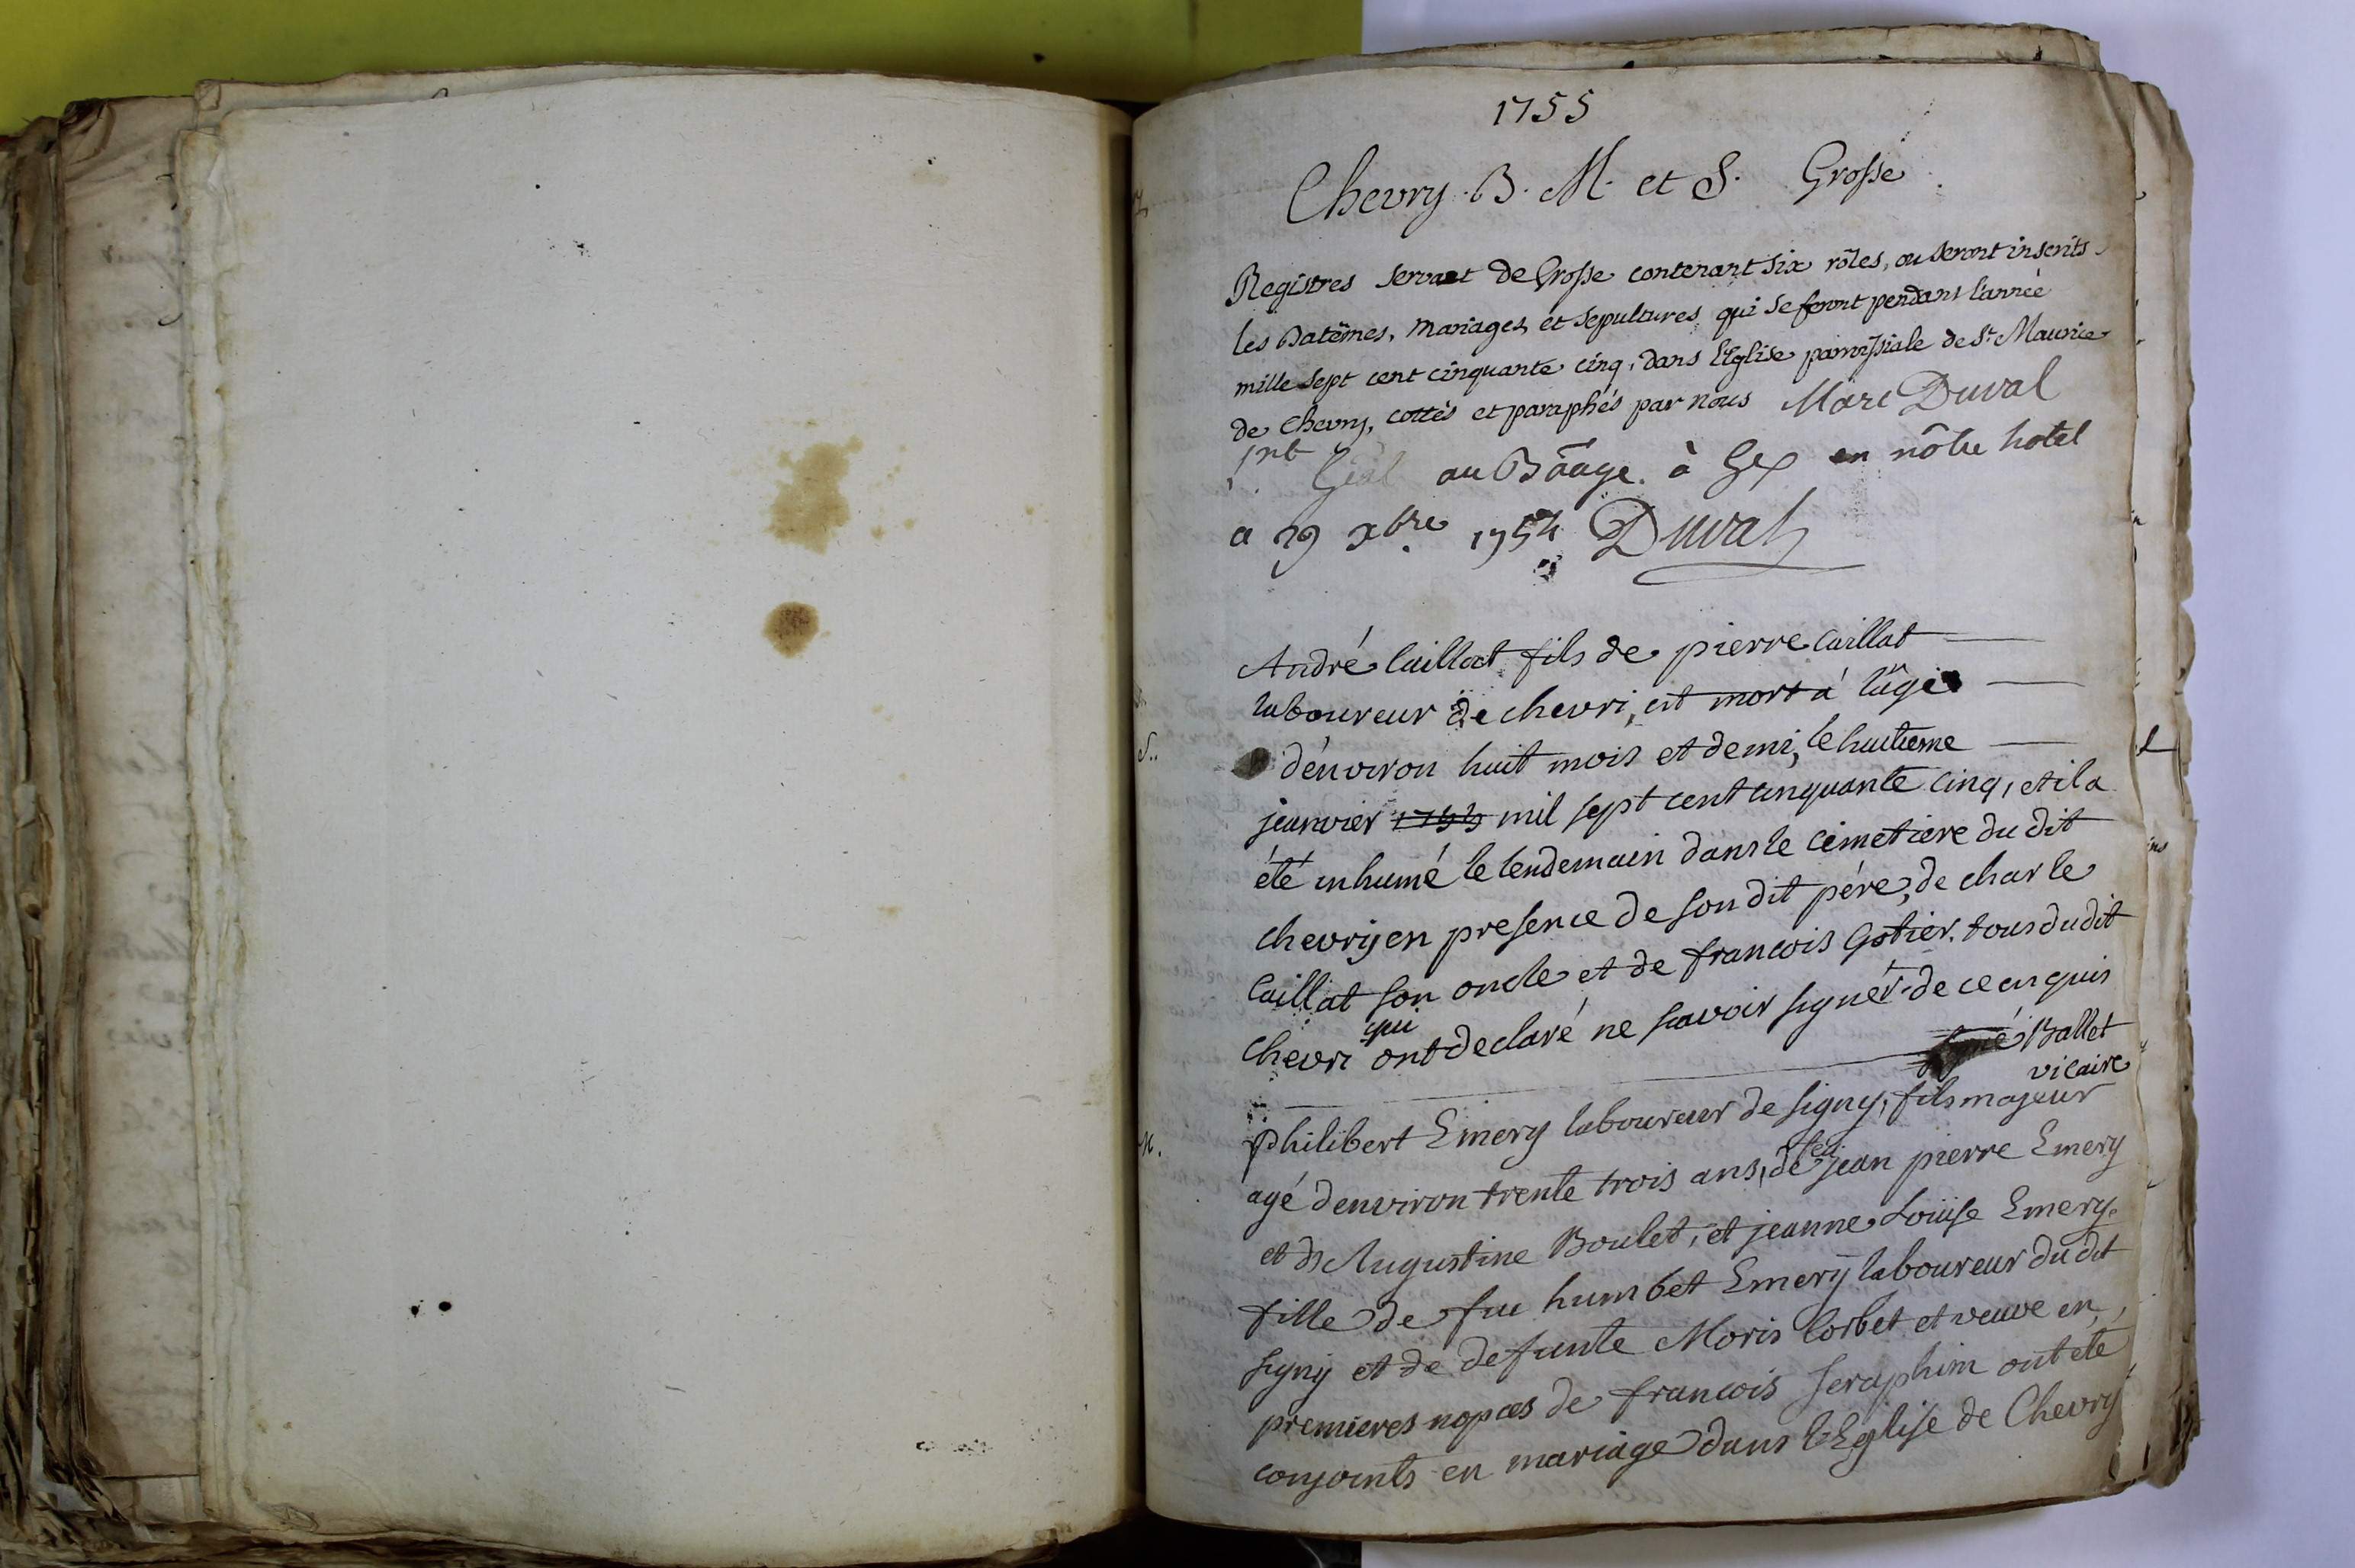 1755
Chevry. B. M. et S. Grosse
Registres servant de Grosse contenant six rôles, ou seront inscrits
les Batêmes, Mariages, et Sepultures, qui se feront pendant l'année
mille sept cent cinquante cinq, dans l'Eglise parroissiale de St Maurice
de Chevry, cottés et paraphés par nous Marc Duval
au Bâage. à Gex en nôtre hotel
a 29 xbre 1754 Duval
S.
André Caillat fils de pierre Caillat
laboureur de chevri, est mort á l'âge
d'environ huit mois et demi, le huitieme
janvier 1755 mil sept cent cinquante cinq, et il a
été inhumé le lendemain dans le cimetiere du dit
chevry en presence de son dit pére, de charle
Caillat son oncle et de francois Gotier. tous du dit
chevri qui ont declaré ne scavoir signér de ce enquis
Ballet
vicaire
M.
philibert Emery laboureur de signy, fils majeur
agé d'environ trente trois ans, de feu jean pierre Emery
et d'Augustine Boulet, et jeanne Loüise Emery
fille de feu humbet Emery laboureur du dit
signy et de defunte Moris Corbet et veuve en
premieres nopces de francois Seraphim ont eté
conjoints en mariage dans l'Eglise de Chevry